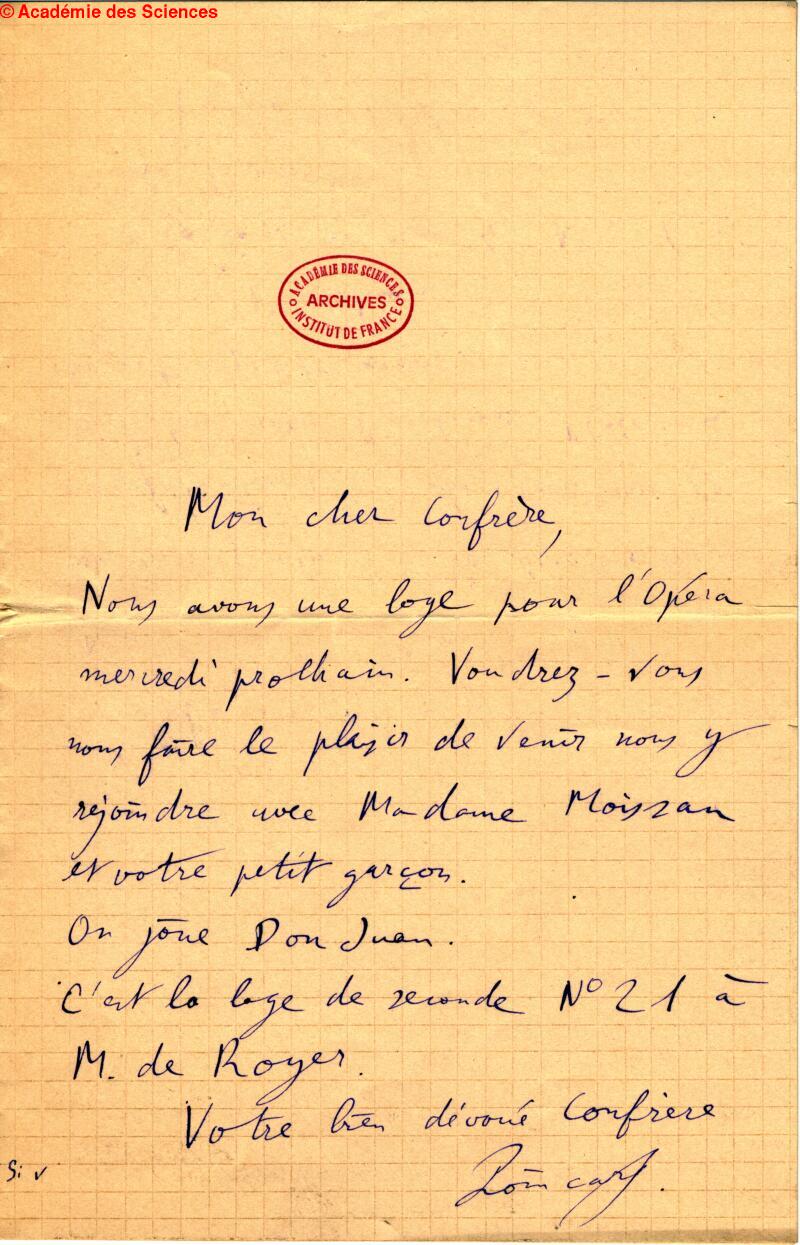 © Académie des Sciences
ACADÉMIE DES SCIENCES
ARCHIVES
INSTITUT DE FRANCE
Mon cher Confrère,
Nous avons une loge pour l'Opéra
mercredi prochain. Voudrez-vous
nous faire le plaisir de venir nous y
rejoindre avec Madame Moissan
et votre petit garçon.
On joue Don Juan.
C'est la loge de seconde No 21 à
M. de Royer.
Votre bien dévoué Confrère
Si v
Poincaré.